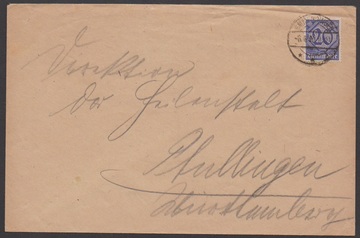 Direktion
der Heilanstalt
Pfullingen
Württemberg
20